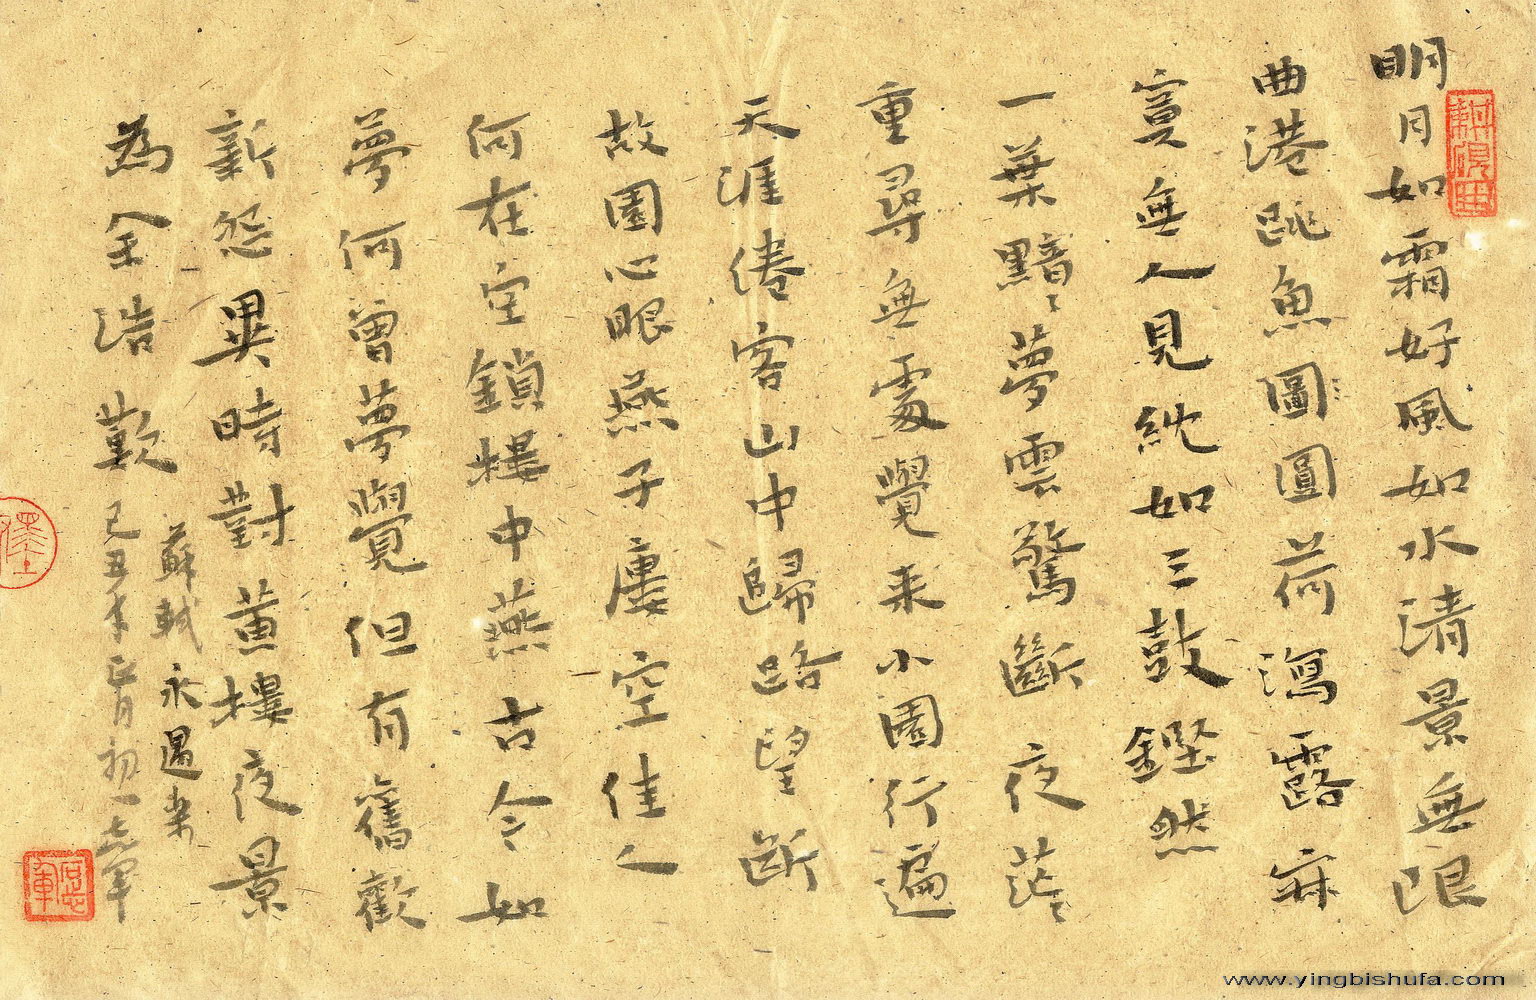 明月如霜好風如水清景無限
曲港跳魚圖圓荷瀉露寂
寞無人見紞如三鼓鏗然
一葉黯〻夢雲驚斷夜茫〻
重尋無處覺来小園行遍
天涯倦客山中歸路望斷
故園心眼燕子樓空佳人
何在空鎖樓中燕古今如
夢何曾夢覺但有舊歡
新怨異時對黃樓夜景
為余浩歎
蘇軾永遇樂
己丑年正月初一志軍
www.yingbishufa.com